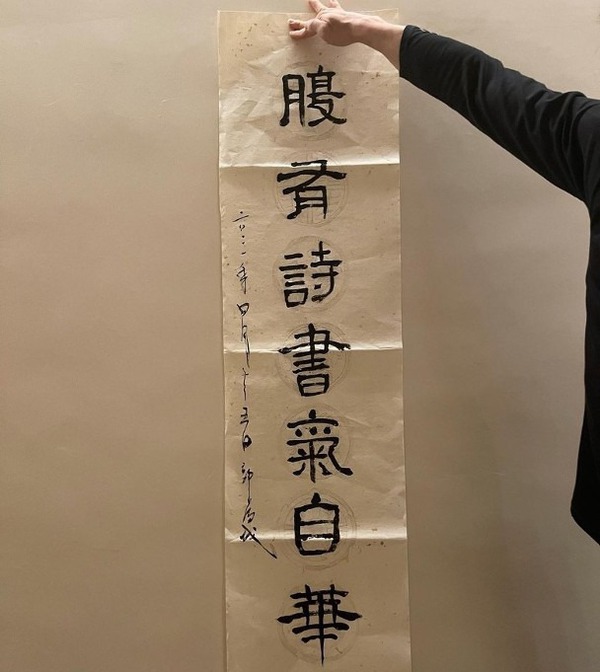 腹有詩書氣自華
二〇二一年四月十五日郭